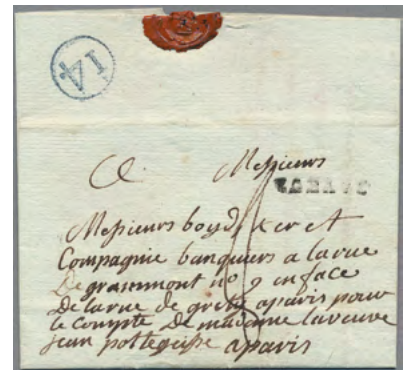 14
A Messieurs
Messieurs boyd, ker et
Compagnie banquiers a la rue
De grammont no 9 en face
De la rue de gretry a paris pour
le Compte De madame la veuve
jean a paris